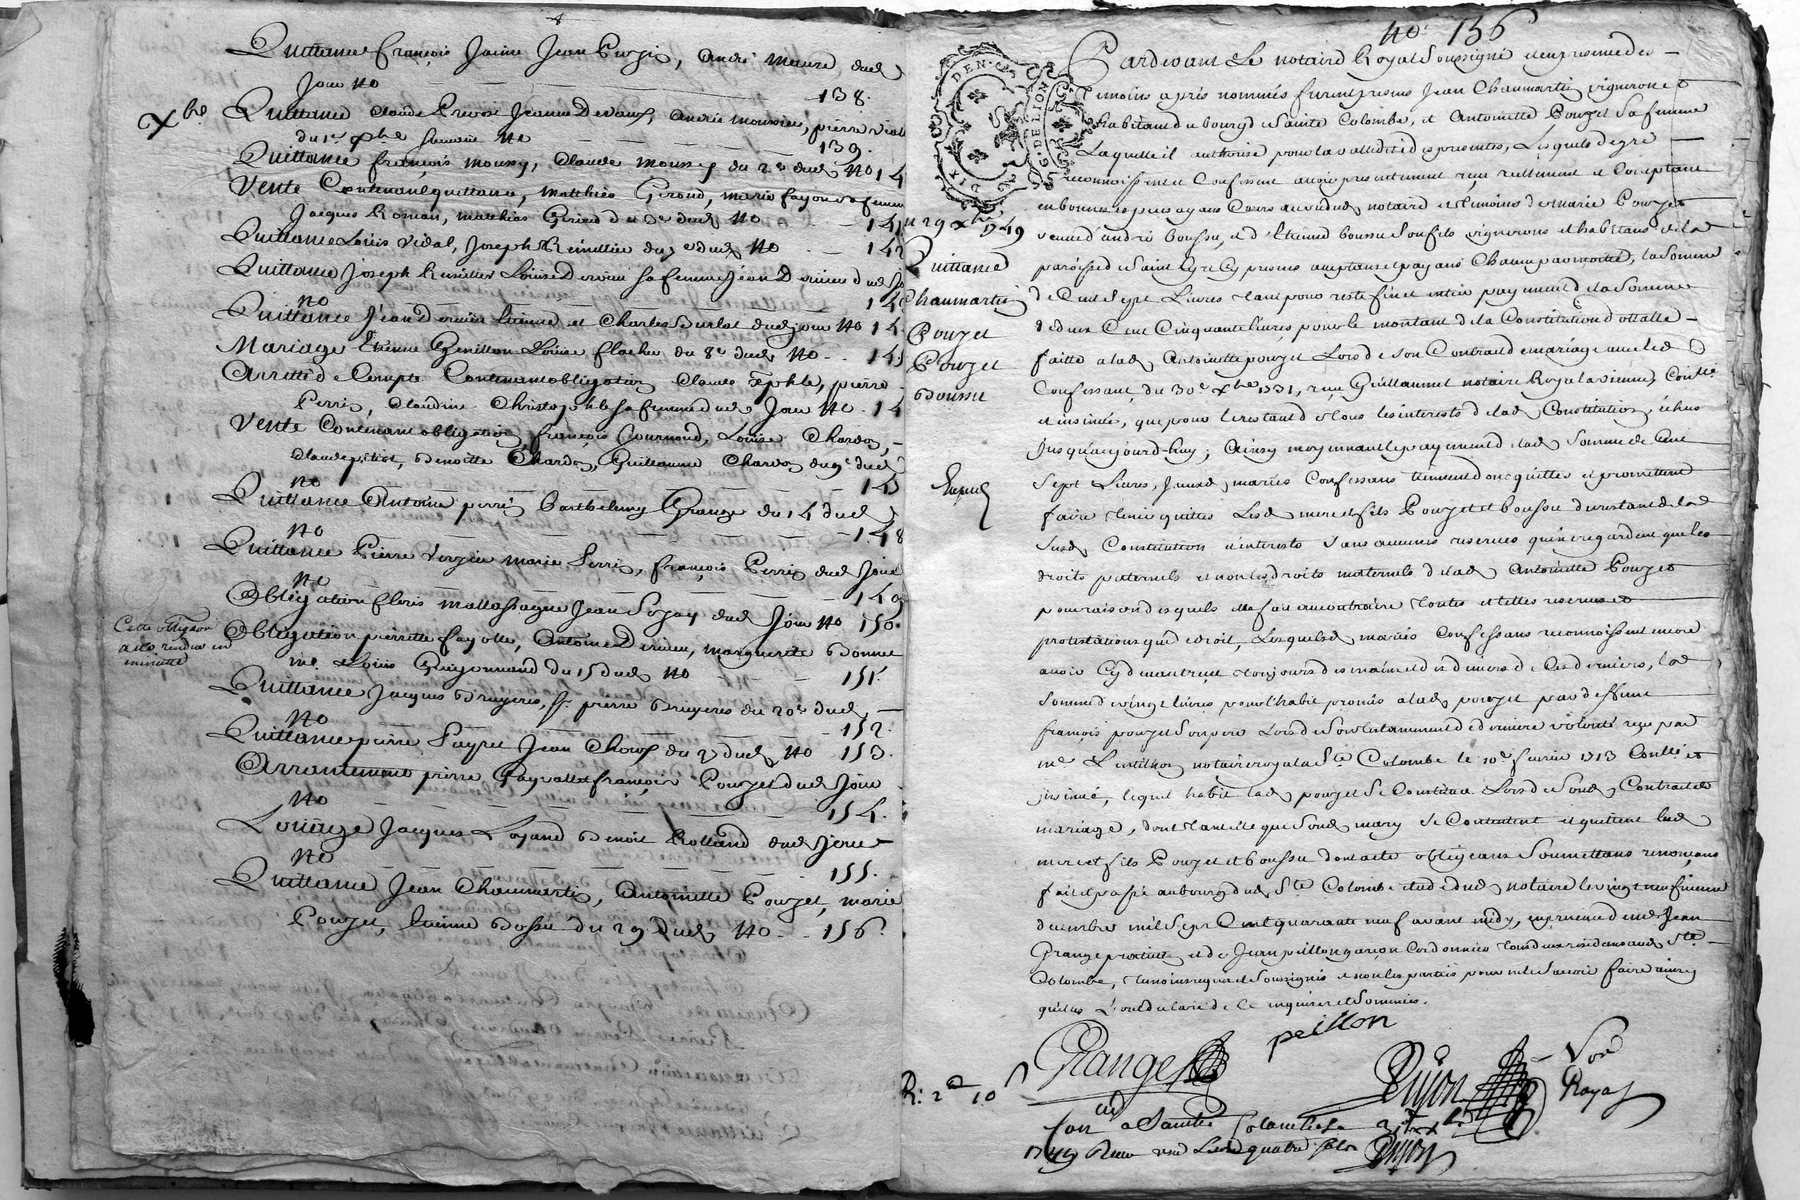 Quittance françois Jaime Jean Purzi, André meusre dud
Jour No 138.
Xbre
Quittance Claude Prevot Jeanne Devaux, André monsieu, pierre viale
du 1er xbre suivant No 139.
Quittance françois moussy, Claude moussy du 2e dud No 14
Vente Contenant quittance, matthieu Giroud, marie fayour sa femme
Jacques Romian, matthias Giroud du 3e dud No 141
Quittance Louis Vidal, Joseph Remillier du 5e dud No 142
Quittance Joseph Remillier Louise Dervieu sa femme Jean Dervieu dud Jo
No 14
Quittance Jean Dervieu Etienne et Charles Burlat dud jour No 14
Mariage Etienne Genillon Louise flacher du 8e dud No 145
Arretté de Compte Contenant obligation Claude Xphle, pierre
Perrin, Claudine Christophle sa femme dud Jour No 14
Vente Contenant obligation, françois Journoud, Louise Chardon,
Claude pitiot, Benoitte Chardon, Guillaume Chardon du 9e dud
No 14
Quittance Antoine perrin Barthelemy Grange du 14 dud
No 148
Quittance Pierre Verzieu marie Perrin, françois Perrin dud Jour
No 149
Obligation fleris mallassagne Jean Pozay dud Jour No 150.
Cette obligaon
a été rendue en
minutte
Obligation pierrette fayolle, Antoine Dervieu, marguerite Bonnet
me. Louis Guyonnand du 15 dud No 151.
Quittance Jacques Bruyeres, Sr. pierre Bruyeres du 20e dud
No 152.
Quittance pierre Payret Jean Chorof du 2 dud No 153.
Arrentement pierre Payrallet françois Pouzet dud Jour
No 154.
Louage Jacques Loyand Benoit Rolland dud Jour
No 155.
Quittance Jean Chaumartin, Antoinette Pouzet, marie
Pouzet, Etienne Bossu du 29 Dud No 156.
No. 156
DIX. G. DE LION
Du 29 Xbre 1749
Quittance
Chaumartin
Pouzet
Pouzet
Boussu
Expédié
Pardevant Le notaire Royal Soussigné et en presence des
temoins après nommés furent presens Jean Chaumartin vigneron et
habitand du bourg de Sainte Colombe, et Antoinette Pouzet sa femme
Laquelle il authorise pour la vallidité des presentes, Lesquels de gré
reconnoissent et Confessent avoir presentement reçu reellement et Comptant
en bonnes especes ayans Cours au vu dud notaire et temoins de marie Pouzet
veuve d'andré boussu, et d'Etienne boussu son fils vignerons et habitans de la
paroisse de Saint Cyre Cy presens acceptans et payans Chacun par moitié, la Somme
de Cent Sept Livres et tant pour reste fin et entier payement de la Somme
de deux Cent Cinquante livres, pour le montant de la Constitution dottalle
faitte a lad Antoinette pouzet Lors de son Contrat de mariage avec led
Confessant, du 30e xbre 1731, reçu Guillaumet notaire Royal a vienne, Conllé
et insinué, que pour le restant de tous les interests de lad Constitution, échus
Jusqu'aujourd-huy; Ainsy moyennant le payement de lad Somme de Cent
Sept Livres, Jceux mariés Confessans tiennent donc quittes et promettent
faire tenir quittes Lesd mere et fils Pouzet et boussu du restant de lad
susd Constitution et interests sans aucunes reserves qu'en regardent que les
droits paternels et non les droits maternels de lad Antoinette Pouzet
pour raison desquels elle fait au contraire toutes et telles reserves et
protestations que de droit, Lesquels mariés Confessans reconnoissent encore
avoir Cydevant reçu toujours des mains et des deniers de Ces derniers, lad
Somme de vingt livres pour l'habit promis a lad pouzet par deffunt
françois pouzet son pere Lors de son testament de derniere volonté reçu par
me Lentillon notaire royal a Ste Colombe le 10e fevrier 1713 Conllé et
insinué, lequel habit lad pouzet Se Constitua Lors de Sond Contrat de
mariage, dont tant elle que Sond mary Se Contentent et quittent lesd
mere et fils Pouzet et boussu dont acte obligeans Soumettans renonçans
fait et passé au bourg dud Ste Colombe etude dud notaire le vingt neufvieme
decembre mil Sept Cent quarante neuf avant midy, en presence de me Jean
Grange praticien et de Jean peillon garçon Cordonnier tous deux residens aud Ste
Colombe, temoins requis et Soussignés et non les parties pour ne le Savoir faire ainsy
qu'elles L'ont declaré de Ce enquises et Sommées.
Grange peillon
Pinson Nore Royal
R: 2# 10s
Con a Sainte Colombe le 31 xbre
1749 Reçu une Livre quatre sols
Pinson